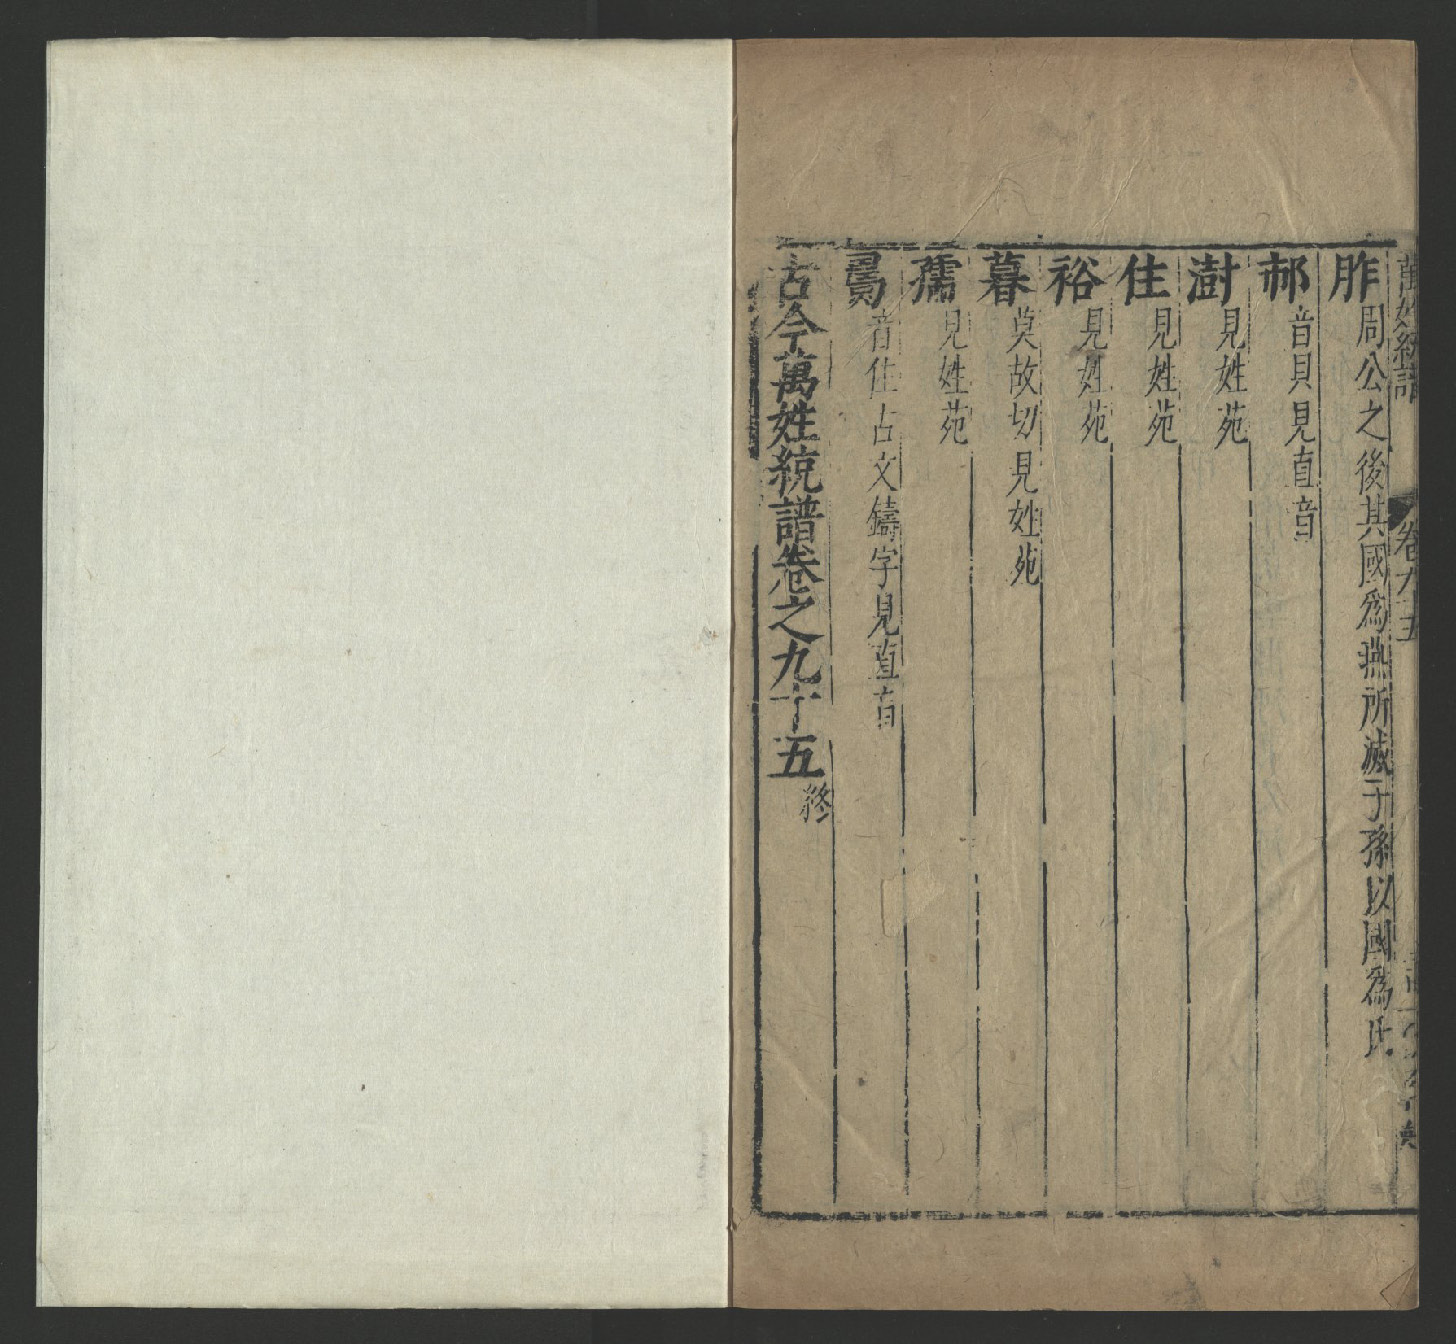 萬姓統譜
卷九十五
胙 周公之後其國為燕所滅子孫以國為氏
郥 音貝見直音
澍 見姓苑
住 見姓苑
裕 見姓苑
暮 莫故切見姓苑
孺 見姓苑
音住古文鑄字見直音
古今萬姓統譜卷之九十五 終